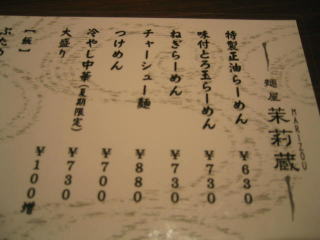 麺屋 茉莉蔵
MARIZOU
特製正油らーめん ￥630
味付とろ玉らーめん ￥730
ねぎらーめん ￥730
チャーシュー麺 ￥880
つけめん ￥700
冷やし中華（夏期限定） ￥730
大盛り ￥100増
【飯】